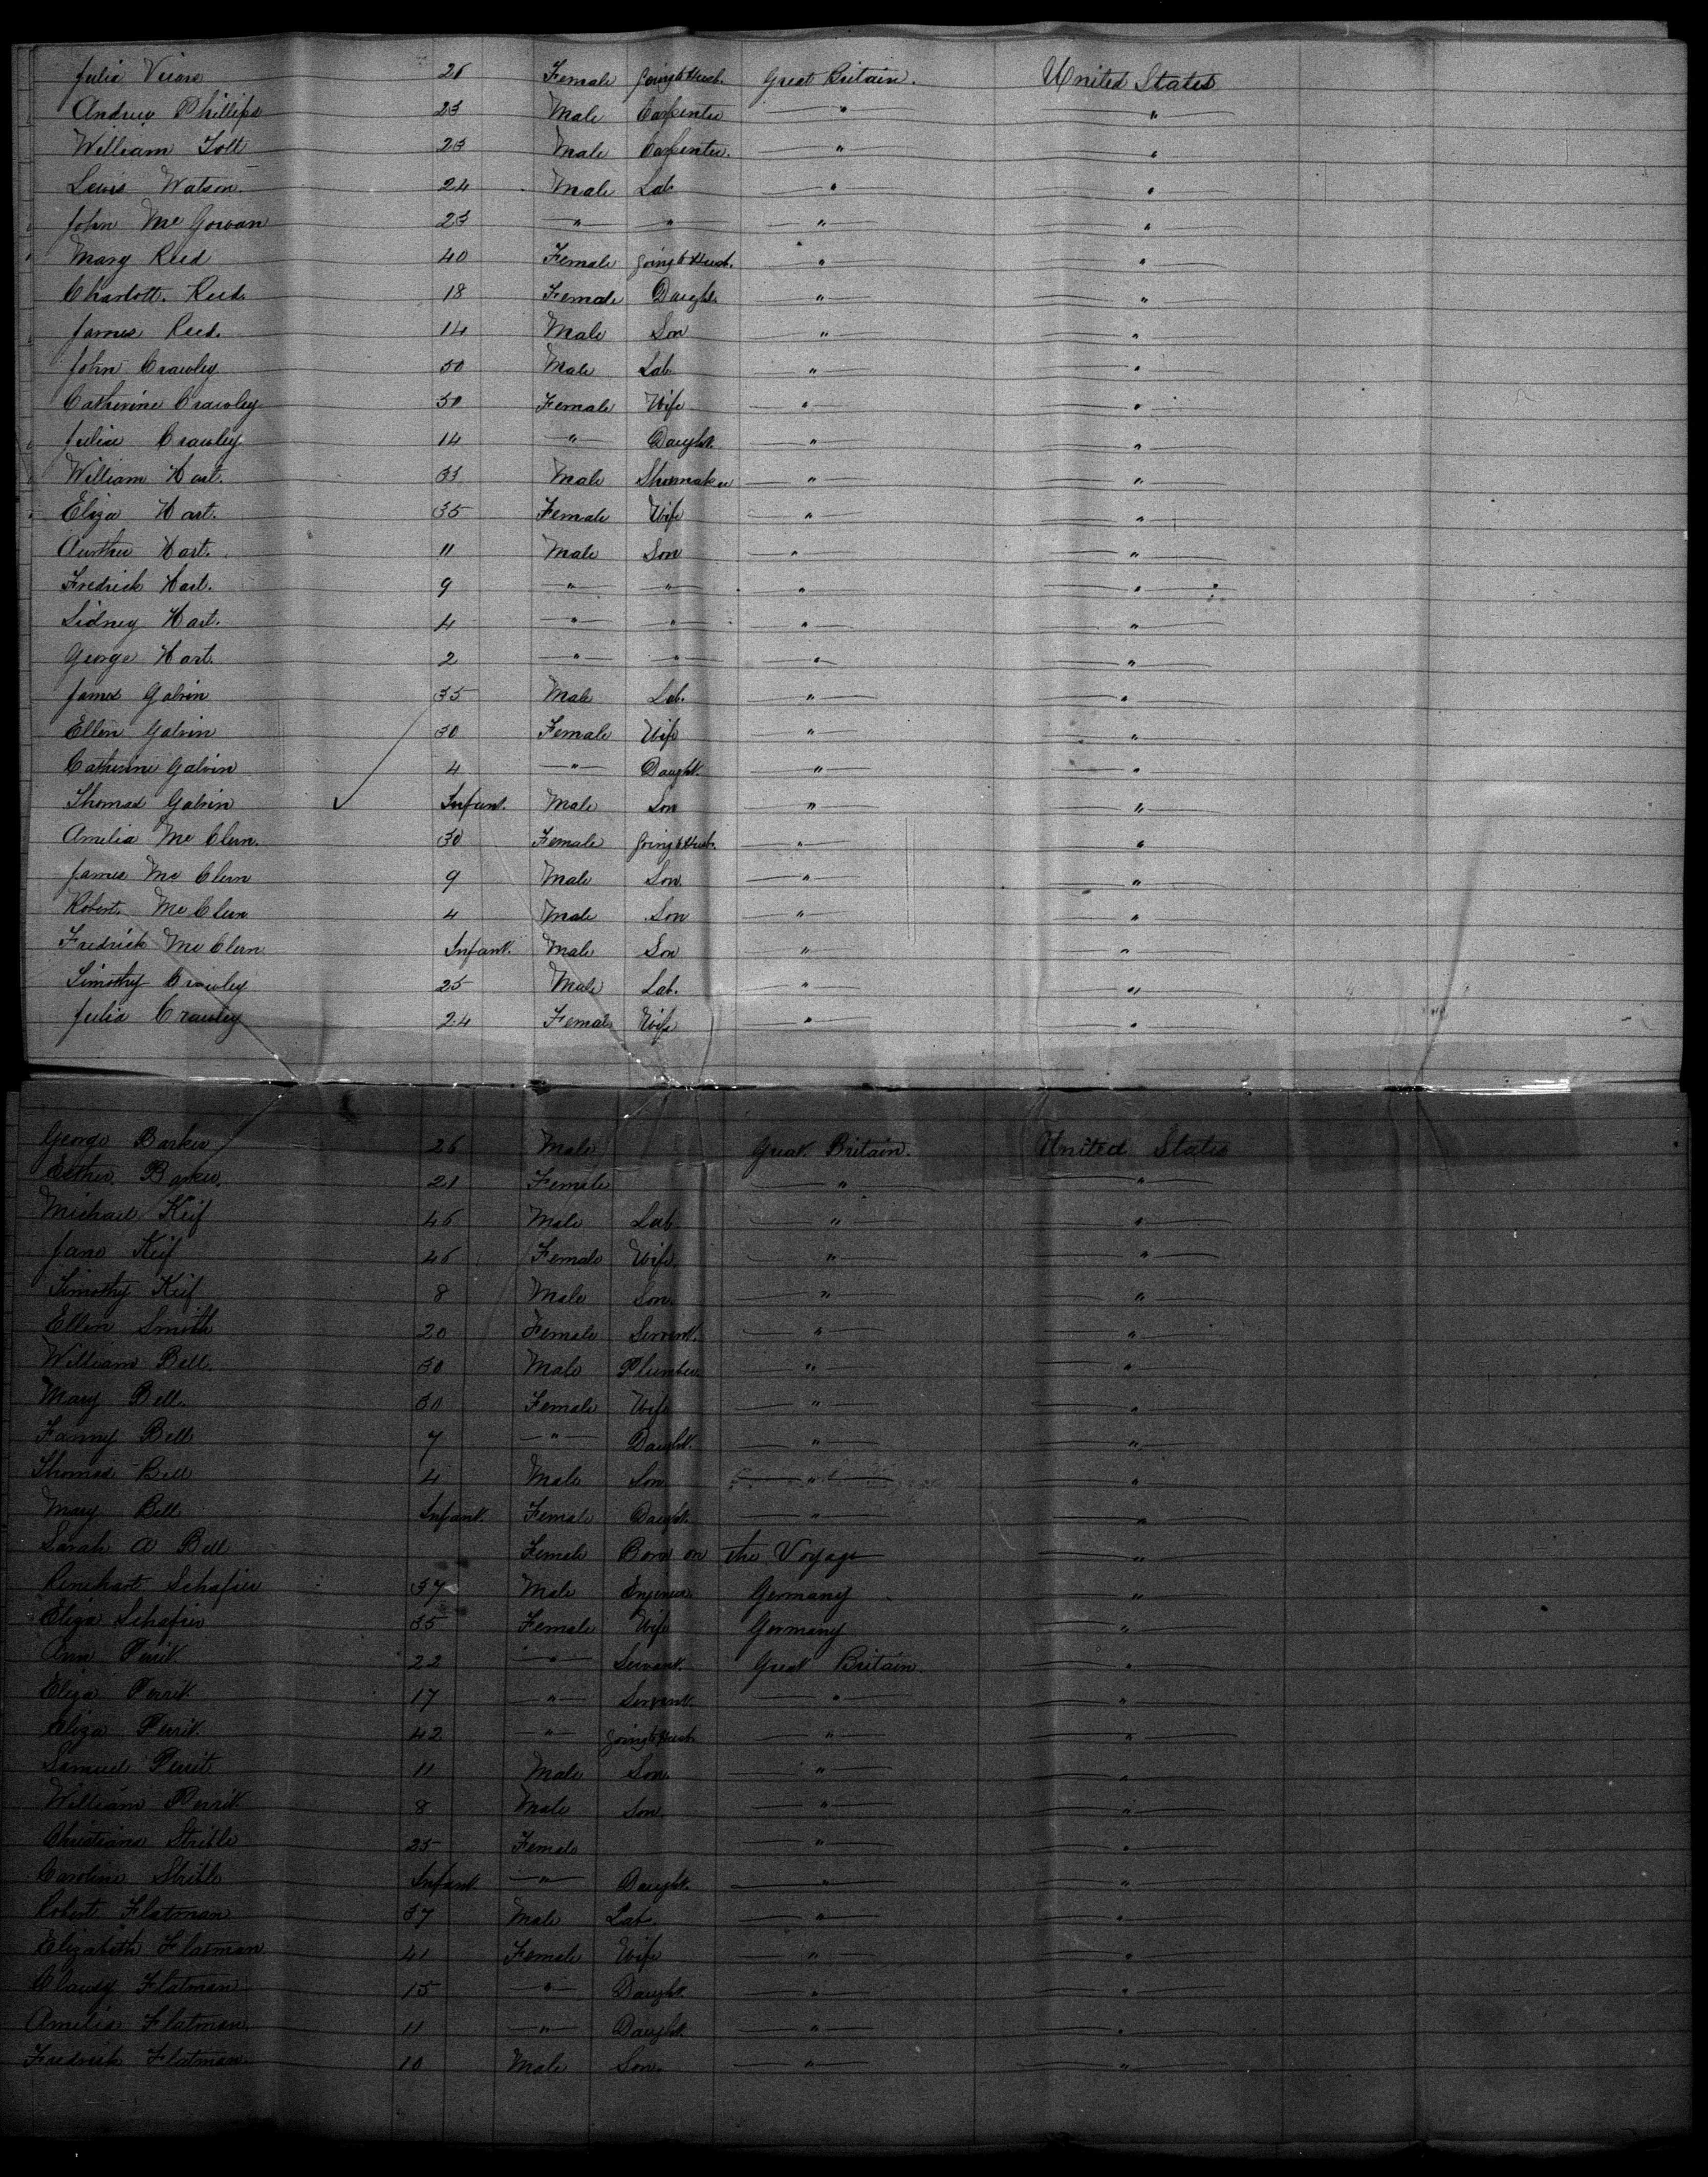 Julia Vicars 26 Female Going to Husb. Great Britain. United States
Andrew Phillips 23 Male Carpenter " "
William Tolt 23 Male Carpenter. " "
Lewis Watson. 24 Male Lab. " "
John McGowan 23 " " " "
Mary Reed 40 Female Going to Husb. " "
Charlott. Reed. 18 Female Daught. " "
James Reed. 14 Male Son " "
John Crawley 50 Male Lab. " "
Catherine Crawley 50 Female Wife " "
Julia Crawley 14 " Daught. " "
William Hart. 33 Male Shoemaker " "
Eliza Hart. 35 Female Wife " "
Aurther Hart. 11 Male Son " "
Fredrick Hart. 9 " " " "
Sidney Hart. 4 " " " "
George Hart. 2 " " " "
James Galvin 35 Male Lab. " "
Ellen Galvin 30 Female Wife " "
Catherine Galvin 4 " Daught. " "
Thomas Galvin Infant. Male Son " "
Amelia McClern. 30 Female Going to Husb. " "
James McClern 9 Male Son. " "
Robert. McClern 4 Male Son " "
Fredrick McClern Infant. Male Son " "
Timothy Crawley 25 Male Lab. " "
Julia Crawley 24 Female Wife " "
George Barker 26 Male Great Britain. United States
Esther. Barker. 21 Female " "
Michael Keif 46 Male Lab. " "
Jane Keif 46 Female Wife. " "
Timothy Keif 8 Male Son. " "
Ellen Smith 20 Female Servent. " "
William Bell. 30 Male Plumber. " "
Mary Bell. 30 Female Wife " "
Fanny Bell 7 " Daught. " "
Thomas Bell 4 Male Son " "
Mary Bell Infant. Female Daught. " "
Sarah A Bell Female Born on the Voyage "
Rinehart Schafier 37 Male Engineer. Germany "
Eliza Schafier 35 Female Wife Germany "
Ann Perrit 22 " Servant. Great Britain. "
Eliza Perrit. 17 " Servent. " "
Eliza Perrit. 42 " Going to Husb. " "
Samuel Perrit 11 Male Son. " "
William Perrit. 8 Male Son. " "
Christiana Strible 25 Female " "
Caroline Strible Infant. " Daught. " "
Robert. Flatman 37 Male Lab. " "
Elizabeth Flatman. 41 Female Wife " "
Flatman 15 " Daught. " "
Amelia Flatman. 11 " Daught. " "
Fredrick Flatman. 10 Male Son. " "